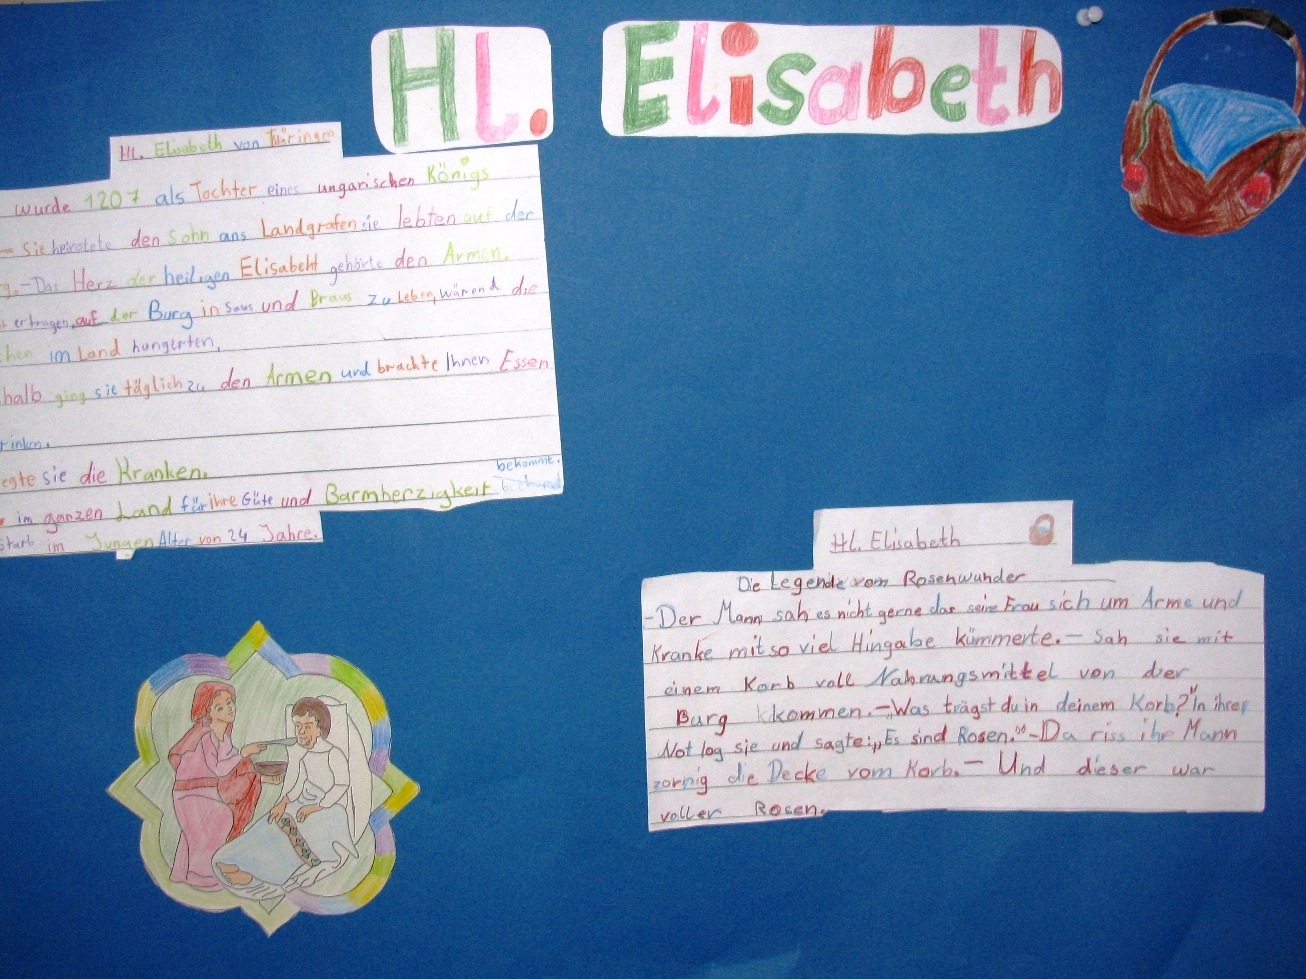 Hl. Elisabeth
Hl. Elisabeth von Thüringen
wurde 1207 als Tochter eines ungarischen Königs
- Sie heiratete den Sohn ans Landgrafen sie lebten auf der
g.-Das Herz der heiligen Elisabeht gehörte den Armen.
ertragen, auf der Burg in Saus und Braus zu Leben, wärend die
chen im Land hungerten,
halb ging sie täglich zu den Armen und brachte Ihnen Essen
rinken.
egte sie die Kranken.
bekommt.
r im ganzen Land für ihre Güte und Barmherzigkeit
starb im Jungen Alter von 24 Jahre.
Hl. Elisabeth
Die Legende vom Rosenwunder
-Der Mann sah es nicht gerne das seine Frau sich um Arme und
Kranke mit so viel Hingabe kümmerte.- Sah sie mit
einem Korb voll Nahrungsmittel von der
Burg kkommen.-„Was trägst du in deinem Korb?" In ihrer
Not log sie und sagte:„Es sind Rosen."-Da riss ihr Mann
zornig die Decke vom Korb.- Und dieser war
voller Rosen.